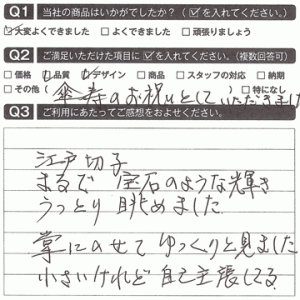 Q1 当社の商品はいかがでしたか?(☑を入れてください。)
☑大変よくできました □よくできました □頑張りましょう
Q2 ご満足いただけた項目に☑を入れてください。(複数回答可)
□価格 ☑品質 ☑デザイン □商品 □スタッフの対応 □納期
□その他( 傘寿のお祝いとしていただきました )□特になし
Q3 ご利用にあたってご感想をおよせください。
江戸切子
まるで 宝石のような輝き
うっとり 眺めました
掌にのせて ゆっくりと見ました
小さいけれど 自己主張してる